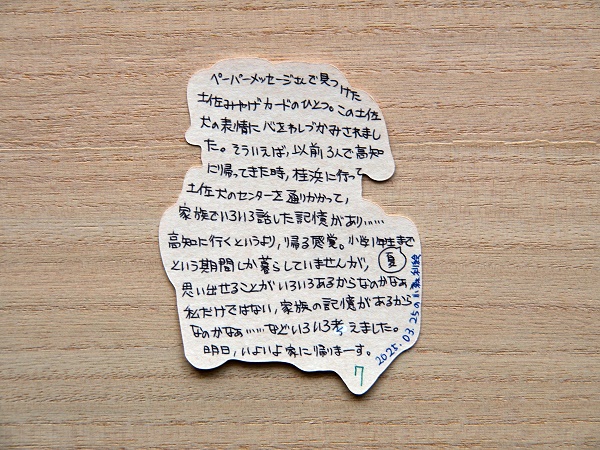 ペーパーメッセージさんで見つけた
土佐みやげカードのひとつ。この土佐
犬の表情に心をわしづかみされまし
た。そういえば、以前3人で高知
に帰ってきた時、桂浜に行って
土佐犬のセンターを通りかかって、
家族でいろいろ話した記憶があり……
高知に行くというより、帰る感覚。小学1年生まで
夏
という期間しか暮らしていませんが、
思い出せることがいろいろあるからなのかなぁ
私だけではない、家族の記憶があるから
なのかなぁ……などいろいろ考えました。
明日、いよいよ家に帰りまーす。
7
2025.03.25の